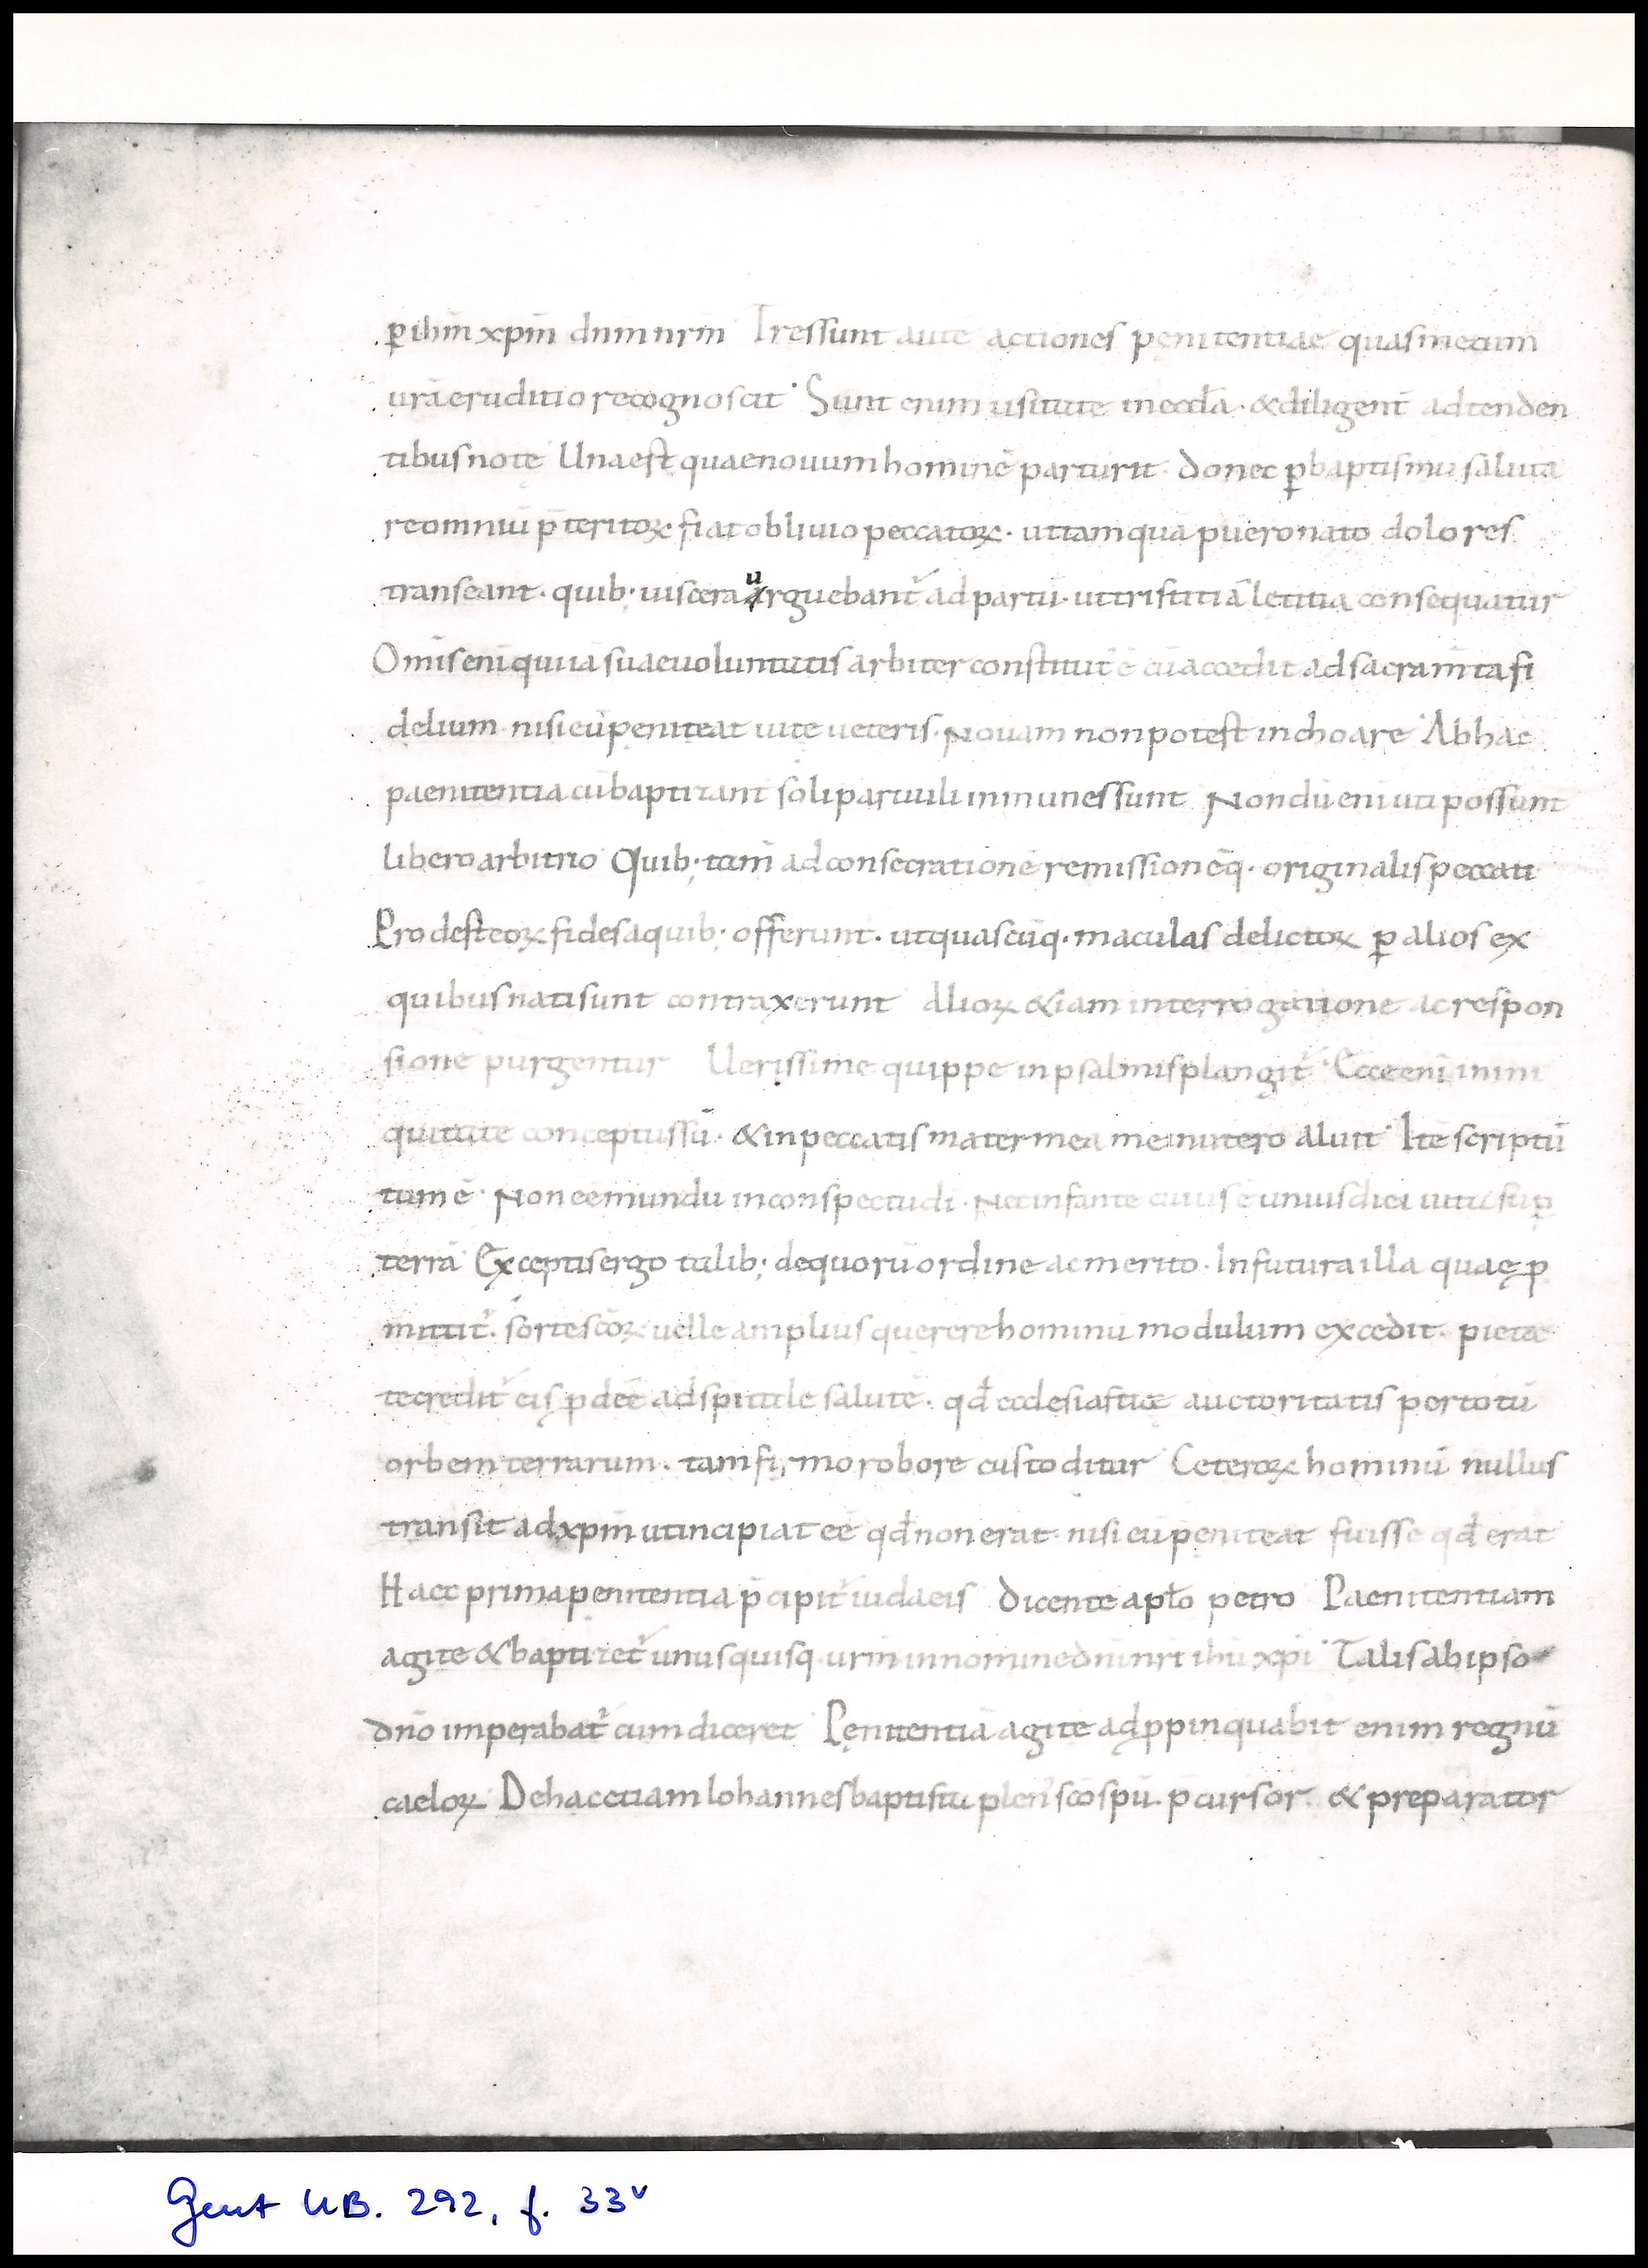 p̲ ihm̄ xpm̄ dnm̄ nrm̄ Tres sunt autē actiones penitentiae quas mecum
ur̄a eruditio recognoscit· Sunt enim usitate in eccl̄a· & diligent̄ adtenden
tibus notę Una est quae nouum hominē parturit· donec p̲ baptismū saluta
re omniū p̄teritoꝝ fiat obliuio peccatoꝝ· ut tamquā puero nato dolores
transeant· quib; uiscera urguebant̄ ad partū· ut tristitiā lętitia consequatur
Omīs enī qui iā suae uoluntatis arbiter constitut᾽ ē cū accedit ad sacram̄ta fi
delium nisi eū peniteat uitę ueteris· Nouam non potest inchoare· Ab hac
paenitentia cū baptizant᾽ soli paruuli inmunes sunt Nondū enī uti possunt
libero arbitrio Quib; tam̄ ad consecrationē remissionēq· originalis peccati
Prodest eoꝝ fides a quib; offerunt᾽· ut quascūq· maculas delictoꝝ p̲ alios ex
quibus nati sunt contraxerunt alioꝝ &iam interrogatione ac respon
sione purgentur Uerissime quippe in psalmis plangit᾽· Ecce enī in ini
quitate conceptus sū· & in peccatis mater mea me in utero aluit· Itē scriptū
tum ē· Non eē mundū in conspectu dī· Nec infantē cuius ē unius diei uita sup̲
terrā Exceptis ergo talib; de quorū ordine ac merito· In futura illa quae p
mittit᾽· sorte sc̄oꝝ uelle amplius querere hominū modulum excedit· pieta
te credit᾽ eis p̲deē ad spītale salutē· qd̄ ecclesiasticę auctoritatis per totū
orbem terrarum· tam firmo robore custoditur Ceteroꝝ hominū nullus
transit ad xpm̄ ut incipiat eē qd̄ non erat· nisi eū peniteat fuisse qd̄ erat
Haec prima penitentia p̄cipit᾽ iudaeis dicente apl̄o petro Paenitentiam
agite & baptizet᾽ unusquisq· urm̄ in nomine dnī nrī ihū xpī· Talis ab ipso
dn̄o imperabat᾽ cum diceret Pęnitentiā agite adp̲pinquabit enim regnū
caeloꝝ De hac etiam Iohannes baptista plen᾽ sc̄o spū· p̄cursor & preparator
Gent UB. 292, f. 33v